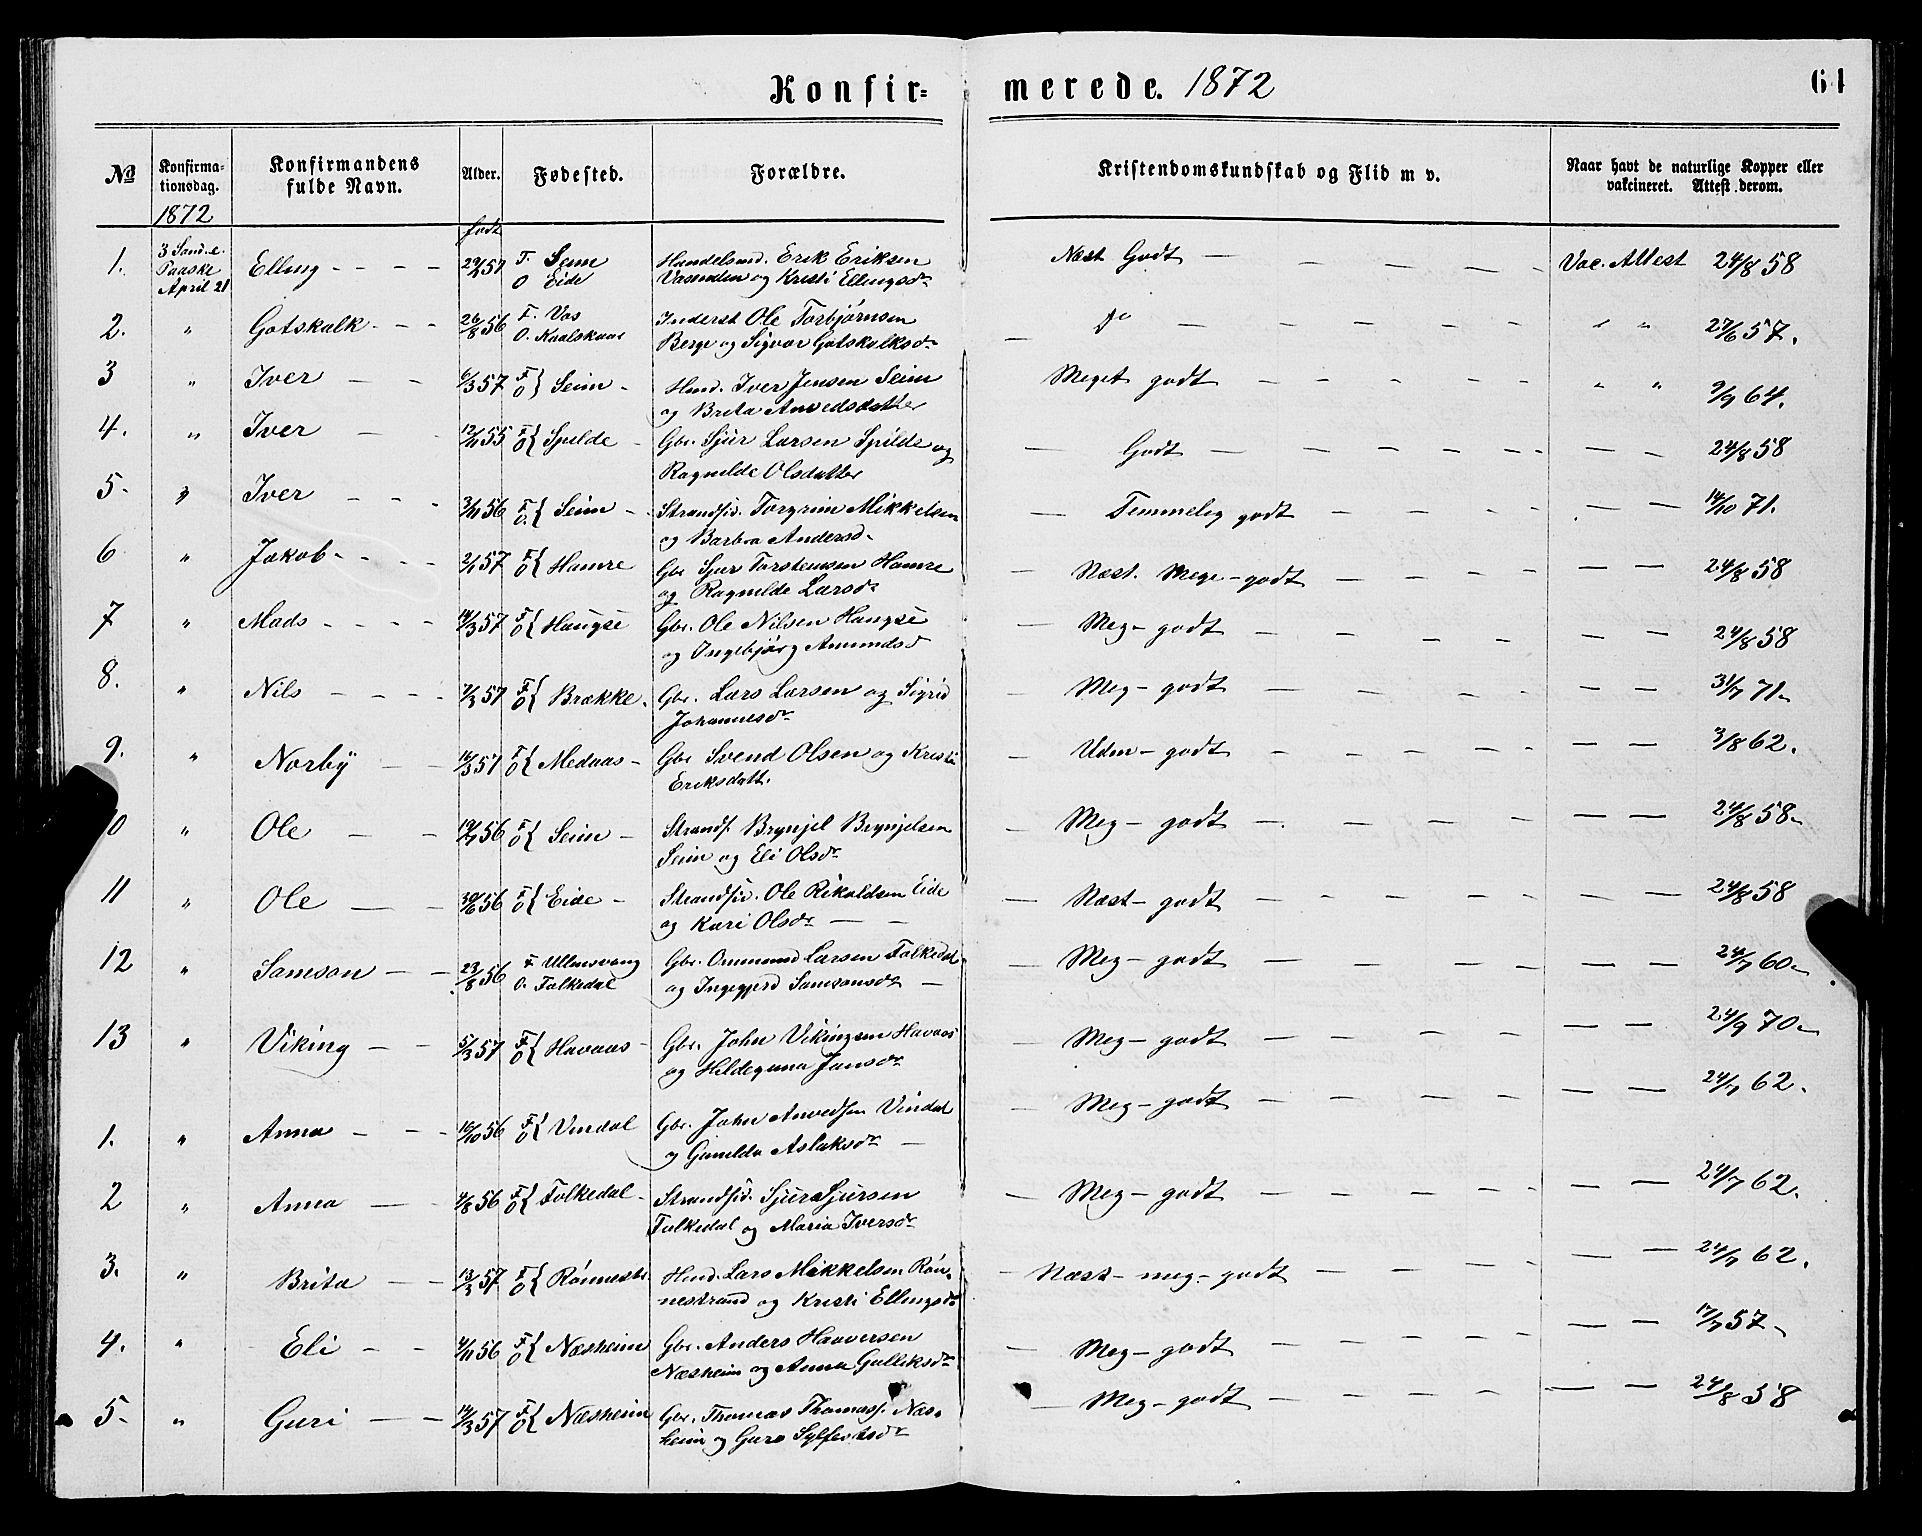 Konfirmerede. 1872 64
№ Konfirmationsdag. Konfirmandens fulde Navn. Alder. Fødested. Forældre. Kristendomskundskab og Flid m v. Naar havt de naturlige Kopper eller vakcineret. Attest derom.
1872 født
1. 3 Sønd. e. Paaske April 21 Elling - - - - 57 F. Seim O Eide Handelsmd. Erik Eriksen
og Kristi Ellingsdr Næst Godt — Vac. Attest 24/8 58
2. " Gotskalk - - - 26/8 56 F. Vos O. Inderst Ole Torbjørnsen
Berge og Sigvor Gotskalksdr do — " " 27/6 57.
3 " Iver — - 6/3 57 F O } Seim - Hmd. Iver Jensen Seim
og Brita Meget godt — " " 9/9 64.
4. " Iver — - 12/11 55 F O { Spilde - Gbr. Sjur Larsen Spilde og
Ragnilde Olsdatter — Godt — 24/8 58
5. " Iver - - - 3/11 56 F O. { Seim - Strandsid. Torgrim Mikkelsen
og Barbra Andersd. — Temmelig godt — 14/10 71.
6 " Jakob - - - - 2/1 57 F O { Hamre Gbr Sjur Torstensen Hamre
og Ragnilde Larsdr — Næst. Mege - godt — 24/8 58
7 " Mads - - - - 14/3 57 F O { Haugse Gbr. Ole Nilsen Haugse
og Ingebjørg Amundsd — Meg - godt — 24/8 58
8. " Nils - - - - 7/3 57 F O { Brække. Gbr. Lars Larsen og Sigrid
Johannesdr — Meg - godt — 31/7 71.
9. " Norby — - 14/3 57 F O { Medaas - Gbr Svend Olsen og Kristi
Eriksdatt. — Udm - godt — 3/8 62.
0 " Ole — - 19/7 56 F O { Seim - Strands. Brynjel Brynjelsen
Seim og Eli Olsdr — Meg - godt — 24/8 58
11 " Ole — - 30/6 56 F O { Eide - Strandsid. Ole Rikoldsen Eide
og Kari Olsdr — Næst - godt — 24/8 58
12 " Samson — - 23/8 56 F Ullensvang O. Folkedal Gbr. Ommund Larsen Folkedal
og Ingegjerd Samsonsdr — Meg - godt — 24/7 60
13 " Viking — - 5/3 57 F O { Havaas - Gbr. John Vikingsen Havaas
og Hildeguna Jonsdr — Meg - godt — 24/9 70
1. " Anna — - - 16/10 56 F O { Vindal Gbr. John Vindal
og Gunilda Aslaksdr — Meg - godt — 24/7 62.
2 " Anna — - 4/8 56 F O { Folkedal - Strandsid. Sjur Sjursen
Folkedal og Maria Iversdr — Meg - godt — 24/7 62.
3. " Brita — - 13/2 57 F O { Rønnestr. Hmd. Lars Mikkelsen Røn-
nestrand og Kristi Ellingsdr — Næst - meg - godt — 24/7 62.
4. " Eli - - 4/11 56 F O { Næsheim Gbr. Anders Haaversen
Næsheim og Anna Gulliksdr — Meg - godt — 17/7 57
5. " Guri — - 14/3 57 F O { Næsheim Gbr. Thomas Thomass. Næs-
heim og Guro — Meg - godt — 24/8 58